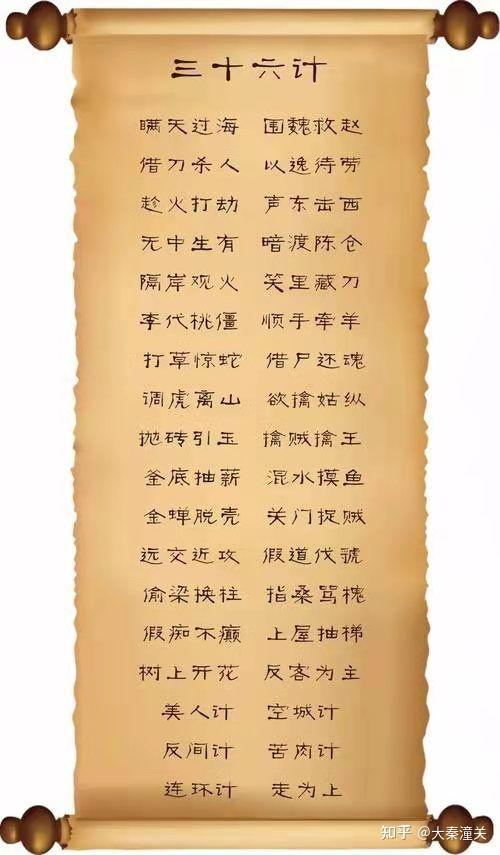 三十六计
瞒天过海 围魏救赵
借刀杀人 以逸待劳
趁火打劫 声东击西
无中生有 暗渡陈仓
隔岸观火 笑里藏刀
李代桃僵 顺手牵羊
打草惊蛇 借尸还魂
调虎离山 欲擒姑纵
抛砖引玉 擒贼擒王
釜底抽薪 混水摸鱼
金蝉脱壳 关门捉贼
远交近攻 假道伐虢
偷梁换柱 指桑骂槐
假痴不癫 上屋抽梯
树上开花 反客为主
美人计 空城计
反间计 苦肉计
连环计 走为上
知乎 @大秦潼关